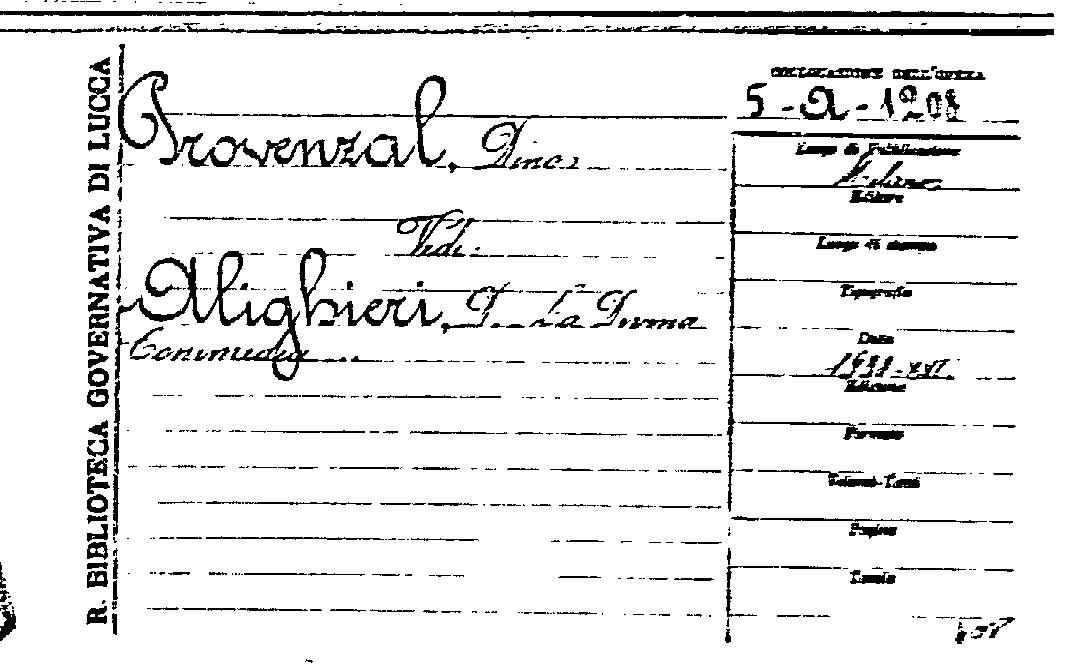 R. BIBLIOTECA GOVERNATIVA DI LUCCA
COLLOCAZIONE DELL'OPERA
5-A-1208
Provenzal, Dino.
Vedi:
Alighieri, D. La Divina
Commedia ...
Luogo di Pubblicazione
Milano
Editore
Luogo di stampa
Tipografia
Data
1938-XVI
Edizione
Formato
Volumi-Tomi
Pagine
Tavole